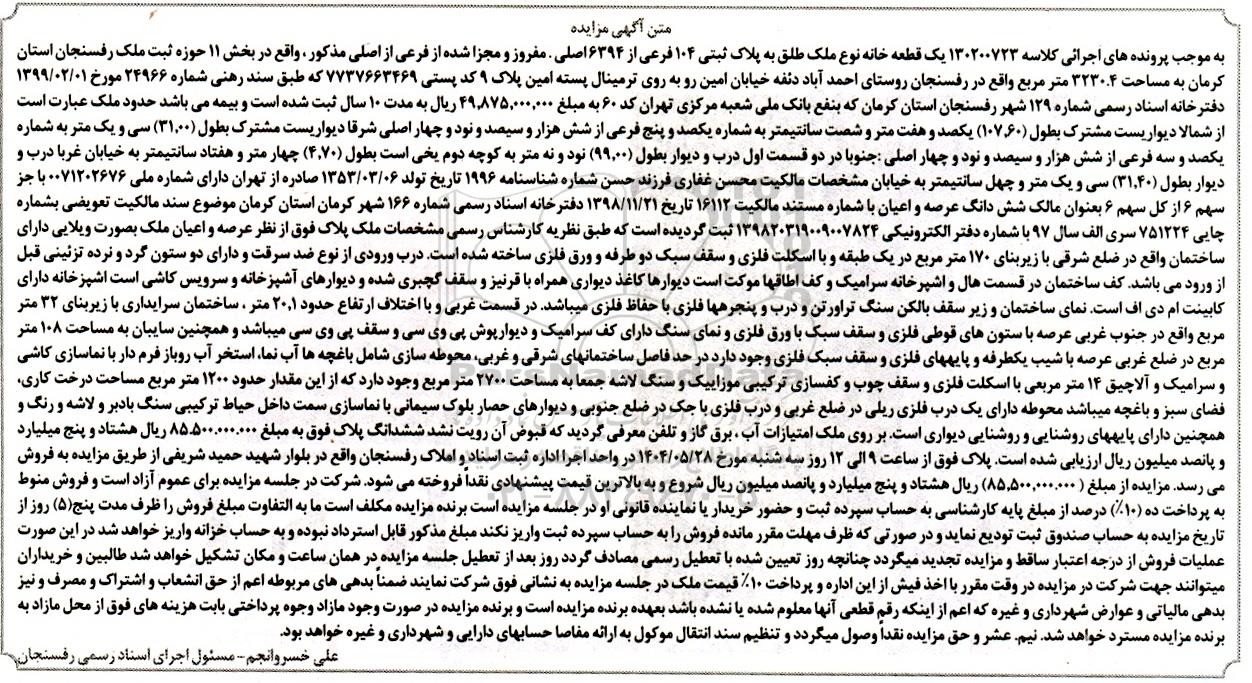 متن آگهی مزایده
به موجب پرونده های اجرائی کلاسه ۱۳۰۲۰۰۷۲۳ یک قطعه خانه نوع ملک طلق به پلاک ثبتی ۱۰۴ فرعی از ۶۳۹۴ اصلی . مفروز و مجزا شده از فرعی از اصلی مذکور ، واقع در بخش ۱۱ حوزه ثبت ملک رفسنجان استان
کرمان به مساحت ۳۲۳۰.۴ متر مربع واقع در رفسنجان روستای احمد آباد دئفه خیابان امین رو به روی ترمینال پسته امین پلاک ۹ کد پستی ۷۷۳۷۶۶۳۴۶۹ که طبق سند رهنی شماره ۲۴۹۶۶ مورخ ۱۳۹۹/۰۲/۰۱
دفترخانه اسناد رسمی شماره ۱۲۹ شهر رفسنجان استان کرمان که بنفع بانک ملی شعبه مرکزی تهران کد ۶۰ به مبلغ ۴۹,۸۷۵,۰۰۰,۰۰۰ ریال به مدت ۱۰ سال ثبت شده است و بیمه می باشد حدود ملک عبارت است
از شمالا دیواریست مشترک بطول (۱۰۷,۶۰) یکصد و هفت متر و شصت سانتیمتر به شماره یکصد و پنج فرعی از شش هزار و سیصد و نود و چهار اصلی شرقا دیواریست مشترک بطول (۳۱,۰۰) سی و یک متر به شماره
یکصد و سه فرعی از شش هزار و سیصد و نود و چهار اصلی :جنوبا در دو قسمت اول درب و دیوار بطول (۹۹,۰۰) نود و نه متر به کوچه دوم یخی است بطول (۴,۷۰) چهار متر و هفتاد سانتیمتر به خیابان غربا درب و
دیوار بطول (۳۱,۴۰) سی و یک متر و چهل سانتیمتر به خیابان مشخصات مالکیت محسن غفاری فرزند حسن شماره شناسنامه ۱۹۹۶ تاریخ تولد ۱۳۵۳/۰۳/۰۶ صادره از تهران دارای شماره ملی ۰۰۷۱۲۰۲۶۷۶ با جز
سهم ۶ از کل سهم ۶ بعنوان مالک شش دانگ عرصه و اعیان با شماره مستند مالکیت ۱۶۱۱۲ تاریخ ۱۳۹۸/۱۱/۲۱ دفترخانه اسناد رسمی شماره ۱۶۶ شهر کرمان استان کرمان موضوع سند مالکیت تعویضی بشماره
چاپی ۷۵۱۲۲۴ سری الف سال ۹۷ با شماره دفتر الکترونیکی ۱۳۹۸۲۰۳۱۹۰۰۹۰۰۷۸۲۴ ثبت گردیده است که طبق نظریه کارشناس رسمی مشخصات ملک پلاک فوق از نظر عرصه و اعیان ملک بصورت ویلایی دارای
ساختمان واقع در ضلع شرقی با زیربنای ۱۷۰ متر مربع در یک طبقه و با اسکلت فلزی و سقف سبک دو طرفه و ورق فلزی ساخته شده است. درب ورودی از نوع ضد سرقت و دارای دو ستون گرد و نرده تزئینی قبل
از ورود می باشد. کف ساختمان در قسمت هال و اشپرخانه سرامیک و کف اطاقها موکت است دیوارها کاغذ دیواری همراه با قرنیز و سقف گچبری شده و دیوارهای آشپزخانه و سرویس کاشی است اشپزخانه دارای
کابینت ام دی اف است. نمای ساختمان و زیر سقف بالکن سنگ تراورتن و درب و پنجرهها فلزی با حفاظ فلزی میباشد. در قسمت غربی و با اختلاف ارتفاع حدود ۲۰,۱ متر ، ساختمان سرایداری با زیربنای ۳۲ متر
مربع واقع در جنوب غربی عرصه با ستون های قوطی فلزی و سقف سبک با ورق فلزی و نمای سنگ دارای کف سرامیک و دیوارپوش پی وی سی و سقف پی وی سی میباشد و همچنین سایبان به مساحت ۱۰۸ متر
مربع در ضلع غربی عرصه با شیب یکطرفه و پایههای فلزی و سقف سبک فلزی وجود دارد در حد فاصل ساختمانهای شرقی و غربی، محوطه سازی شامل باغچه ها آب نما، استخر آب روباز فرم دار با نماسازی کاشی
و سرامیک و آلاچیق ۱۴ متر مربعی با اسکلت فلزی و سقف چوب و کفسازی ترکیبی موزاییک و سنگ لاشه جمعا به مساحت ۲۷۰۰ متر مربع وجود دارد که از این مقدار حدود ۱۲۰۰ متر مربع مساحت درخت کاری،
فضای سبز و باغچه میباشد محوطه دارای یک درب فلزی ریلی در ضلع غربی و درب فلزی با جک در ضلع جنوبی و دیوارهای حصار بلوک سیمانی با نماسازی سمت داخل حیاط ترکیبی سنگ بادبر و لاشه و رنگ و
همچنین دارای پایههای روشنایی و روشنایی دیواری است. بر روی ملک امتیازات آب ، برق گاز و تلفن معرفی گردید که قبوض آن رویت نشد ششدانگ پلاک فوق به مبلغ ۸۵.۵۰۰.۰۰۰.۰۰۰ ریال هشتاد و پنج میلیارد
و پانصد میلیون ریال ارزیابی شده است. پلاک فوق از ساعت ۹ الی ۱۲ روز سه شنبه مورخ ۱۴۰۴/۰۵/۲۸ در واحد اجرا اداره ثبت اسناد و املاک رفسنجان واقع در بلوار شهید حمید شریفی از طریق مزایده به فروش
می رسد. مزایده از مبلغ ( ۸۵,۵۰۰,۰۰۰,۰۰۰) ریال هشتاد و پنج میلیارد و پانصد میلیون ریال شروع و به بالاترین قیمت پیشنهادی نقداً فروخته می شود. شرکت در جلسه مزایده برای عموم آزاد است و فروش منوط
به پرداخت ده (۱۰٪) درصد از مبلغ پایه کارشناسی به حساب سپرده ثبت و حضور خریدار یا نماینده قانونی او در جلسه مزایده است برنده مزایده مکلف است ما به التفاوت مبلغ فروش را ظرف مدت پنج(۵) روز از
تاریخ مزایده به حساب صندوق ثبت تودیع نماید و در صورتی که ظرف مهلت مقرر مانده فروش را به حساب سپرده ثبت واریز نکند مبلغ مذکور قابل استرداد نبوده و به حساب خزانه واریز خواهد شد در این صورت
عملیات فروش از درجه اعتبار ساقط و مزایده تجدید میگردد چنانچه روز تعیین شده با تعطیل رسمی مصادف گردد روز بعد از تعطیل جلسه مزایده در همان ساعت و مکان تشکیل خواهد شد طالبین و خریداران
میتوانند جهت شرکت در مزایده در وقت مقرر با اخذ فیش از این اداره و پرداخت ۱۰٪ قیمت ملک در جلسه مزایده به نشانی فوق شرکت نمایند ضمناً بدهی های مربوطه اعم از حق انشعاب و اشتراک و مصرف و نیز
بدهی مالیاتی و عوارض شهرداری و غیره که اعم از اینکه رقم قطعی آنها معلوم شده یا نشده باشد بعهده برنده مزایده است و برنده مزایده در صورت وجود مازاد وجوه پرداختی بابت هزینه های فوق از محل مازاد به
برنده مزایده مسترد خواهد شد. نیم. عشر و حق مزایده نقداً وصول میگردد و تنظیم سند انتقال موکول به ارائه مفاصا حسابهای دارایی و شهرداری و غیره خواهد بود.
علی خسروانجم - مسئول اجرای اسناد رسمی رفسنجان
ParsNamadData
۰۲۱-۸۸۳۴۹۶۷۰-۵